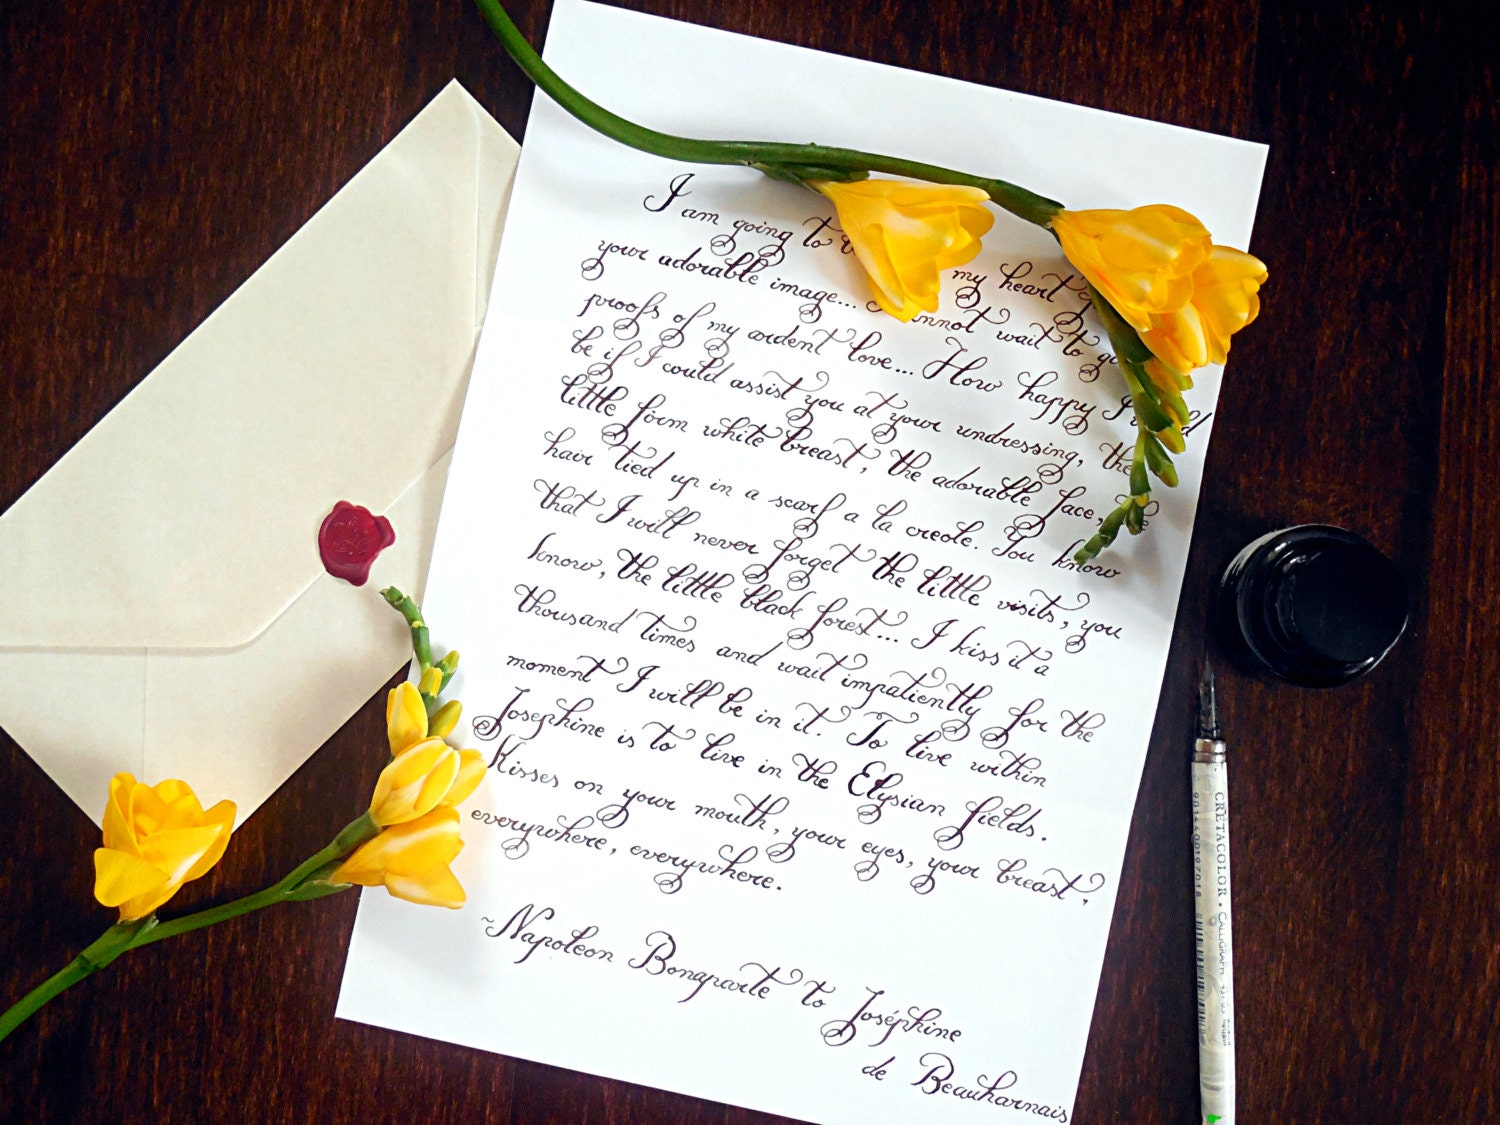 I am going to my heart
your adorable image... cannot wait to
proofs of my ardent love... How happy I
be if I could assist you at your undressing, the
little firm white breast, the adorable face, the
hair tied up in a scarf a la creole. You know
that I will never forget the little visits, you
know, the little black forest... I kiss it a
thousand times and wait impatiently for the
moment I will be in it. To live within
Josephine is to live in the Elysian fields.
Kisses on your mouth, your eyes, your breast,
everywhere, everywhere.
~Napoleon Bonaparte to Joséphine
de Beauharnais
CRETACOLOR • CALLIGRAPH
9014400197018